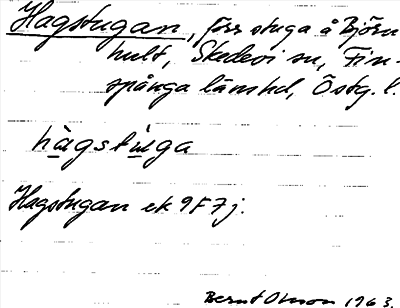 Hagstugan, förr stuga å Björn
hult, Skedevi sn, Fin-
spånga länshd, Östg. l.
hàgstùga
Hagstugan ek 9F7j.
Bernt Olsson 1963.